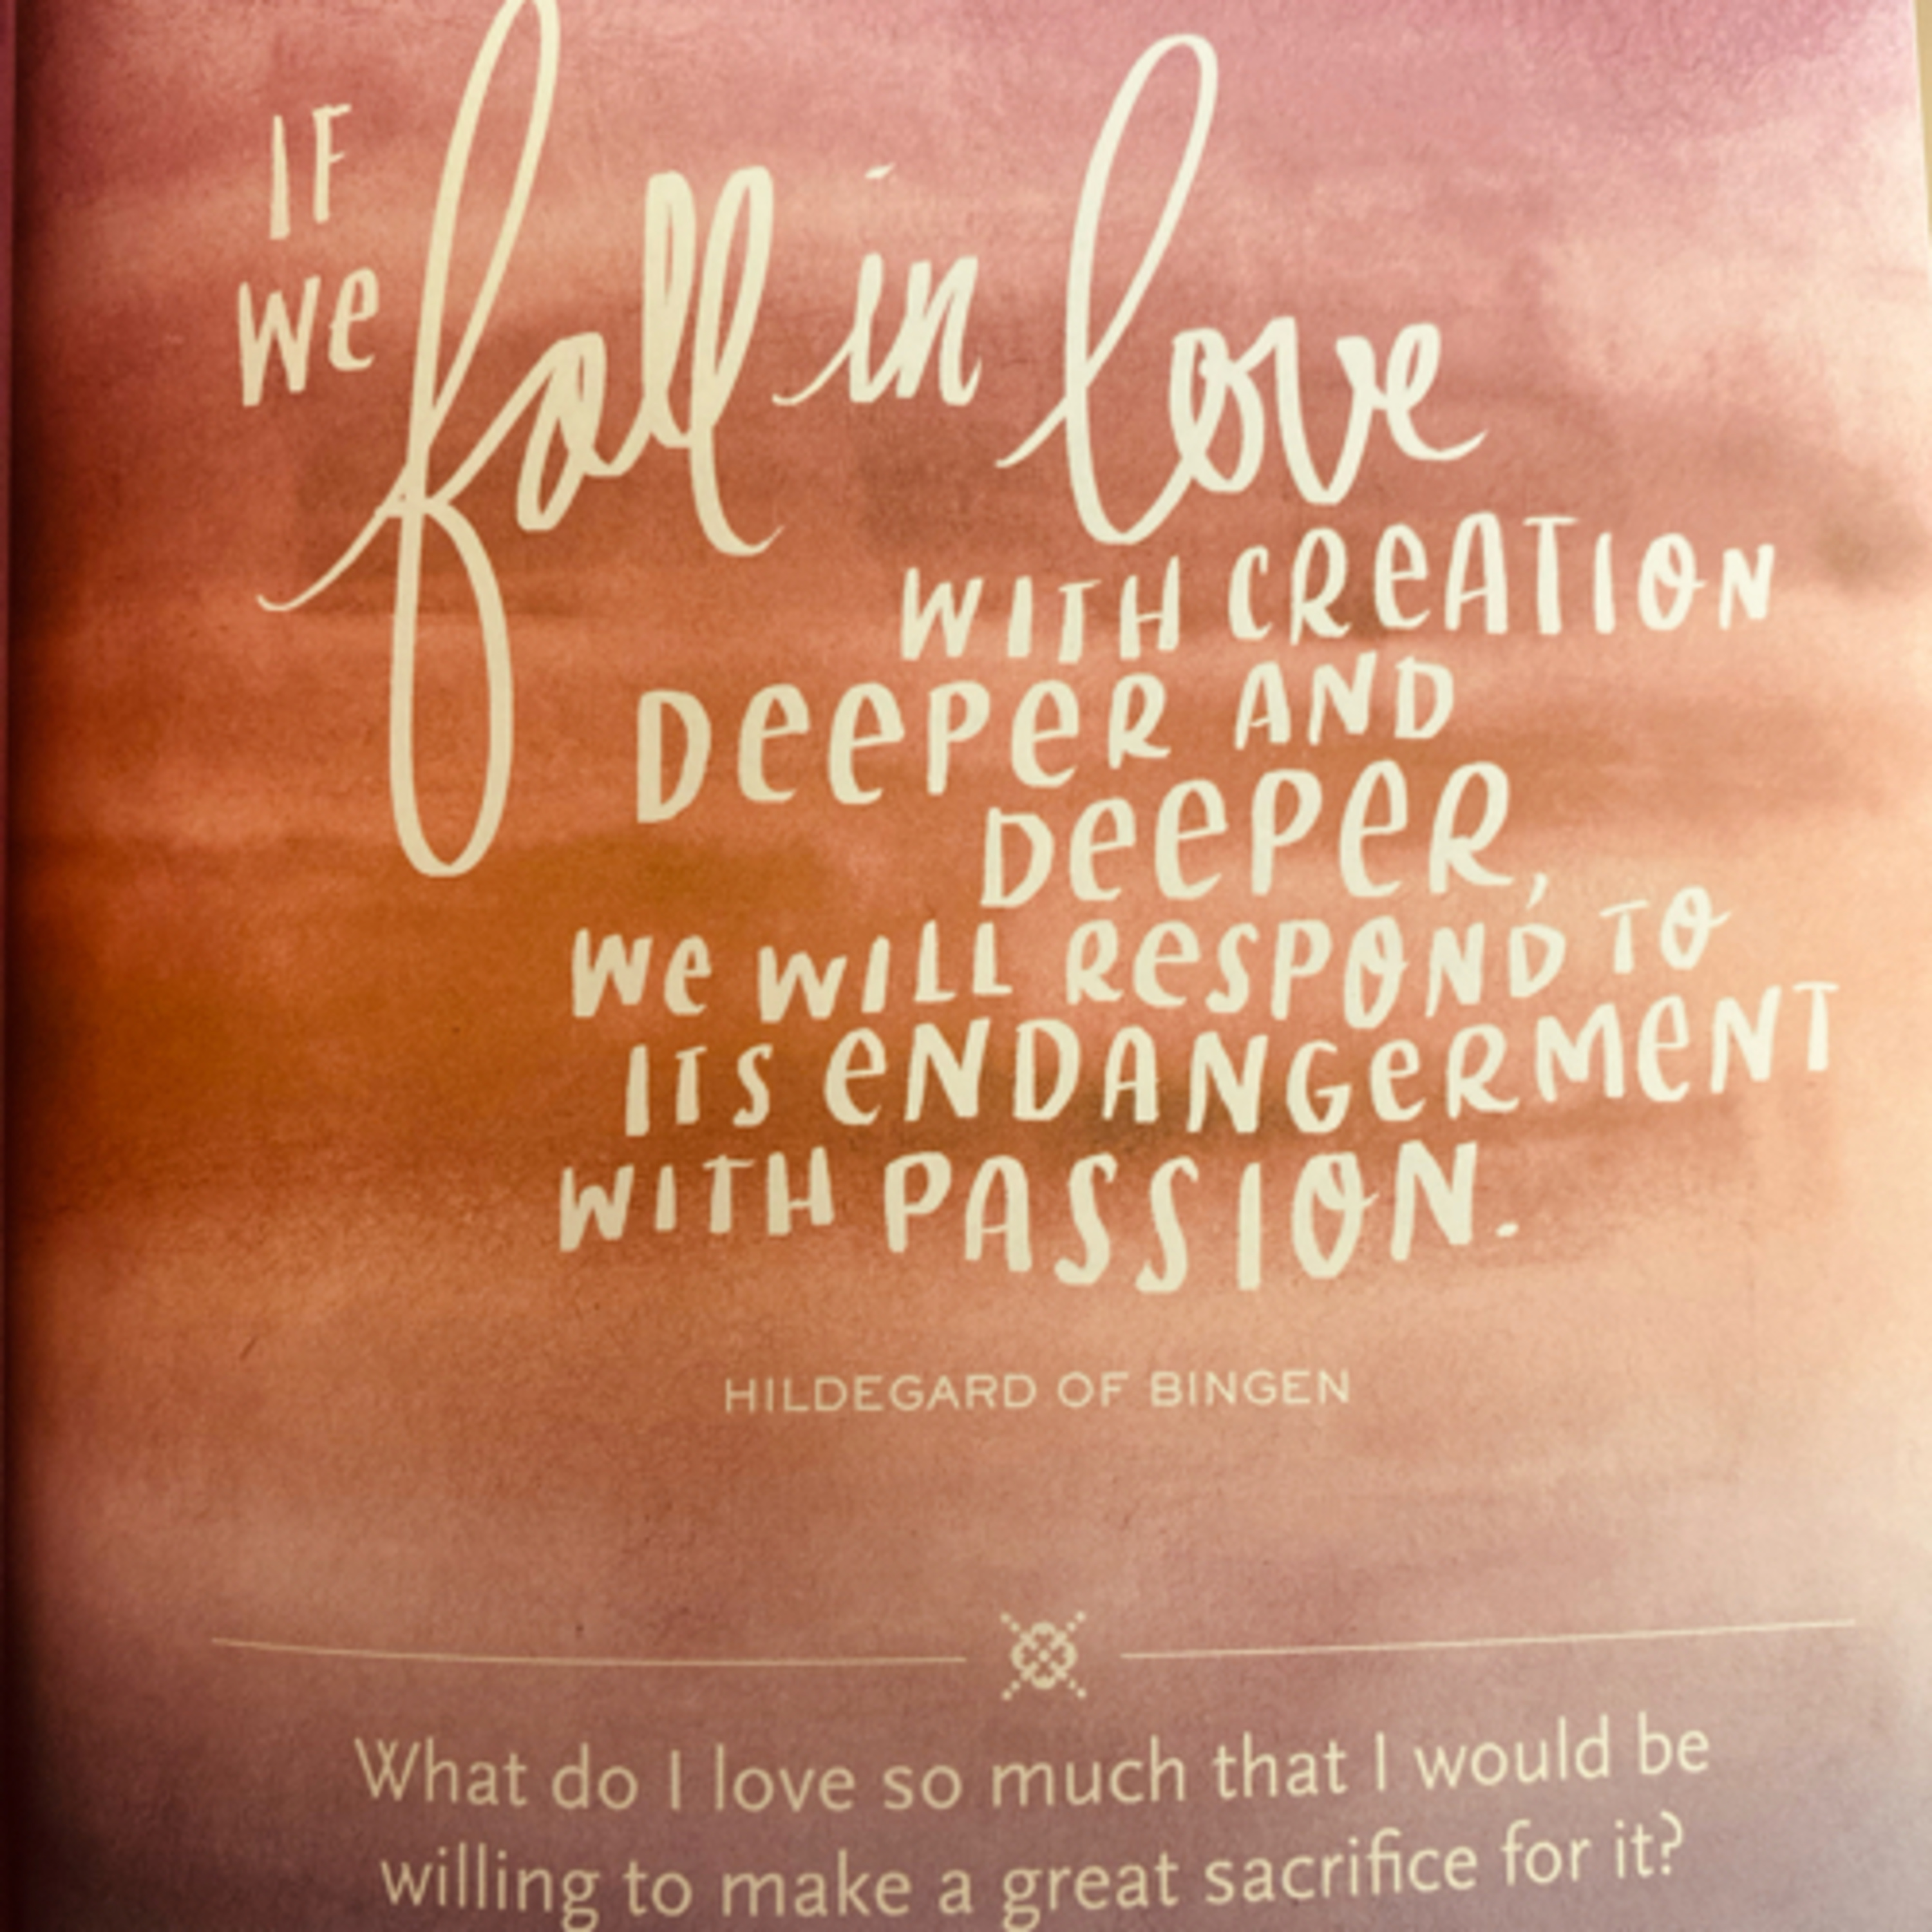 IF
We fall in love
WITH CREATION
DeePeR AND
DeePeR,
We WILL ReSPOND TO
ITS eNDANGeRMeNT
WITH PASSION.
HILDEGARD OF BINGEN
What do I love so much that I would be
willing to make a great sacrifice for it?